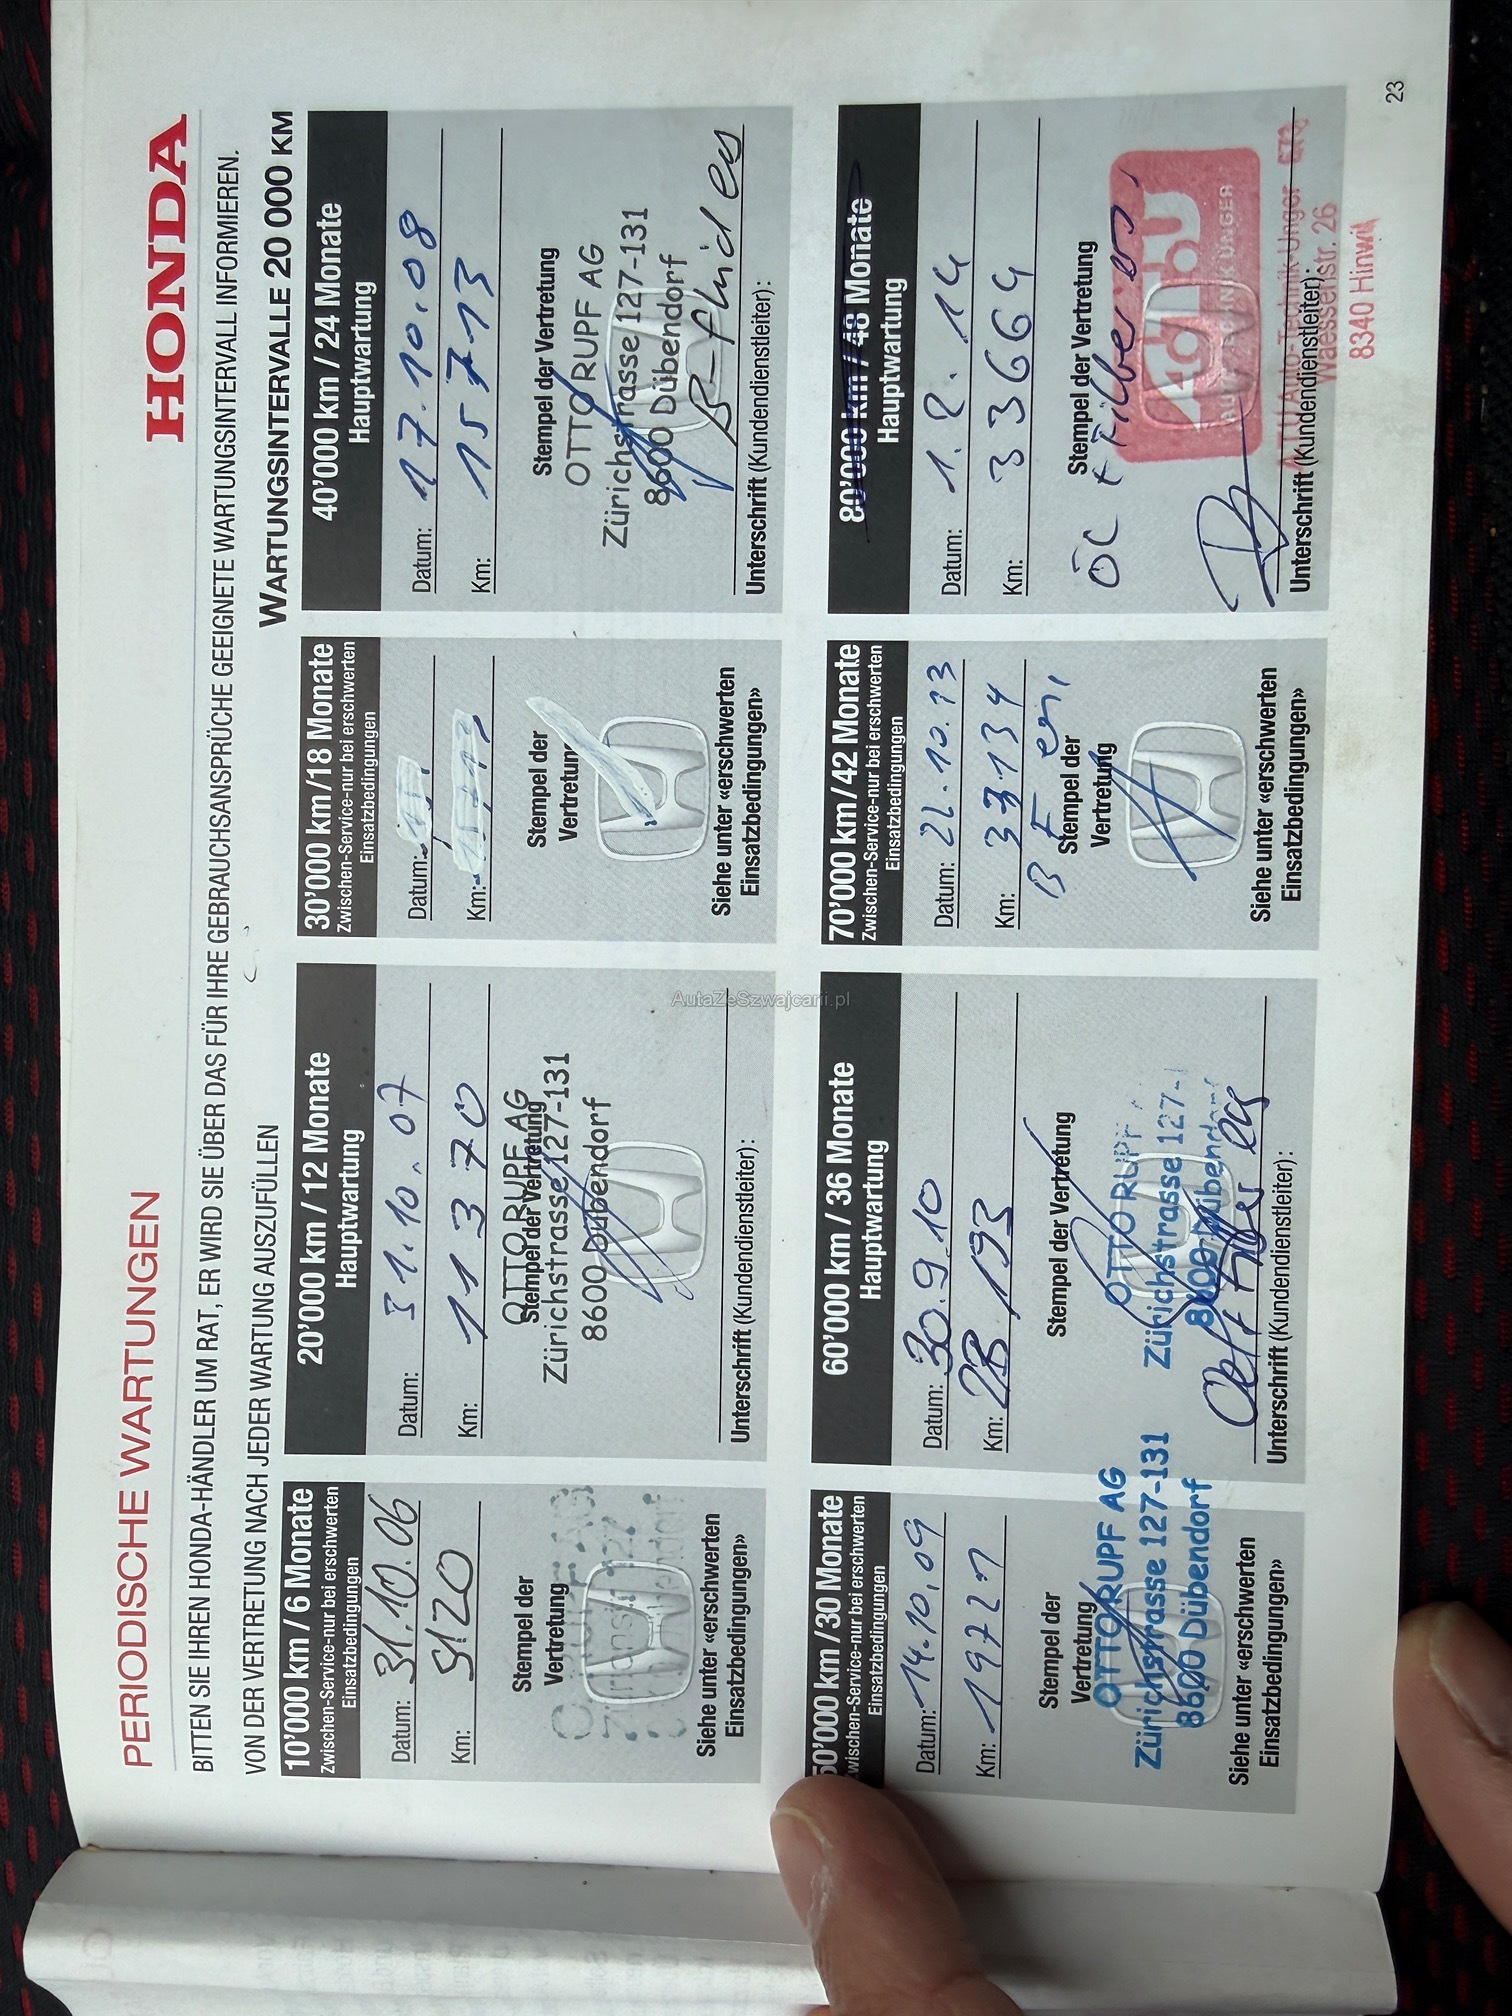 PERIODISCHE WARTUNGEN
HONDA
BITTEN SIE IHREN HONDA-HÄNDLER UM RAT, ER WIRD SIE ÜBER DAS FÜR IHRE GEBRAUCHSANSPRÜCHE GEEIGNETE WARTUNGSINTERVALL INFORMIEREN.
VON DER VERTRETUNG NACH JEDER WARTUNG AUSZUFÜLLEN
WARTUNGSINTERVALLE 20 000 KM
10'000 km / 6 Monate
Zwischen-Service-nur bei erschwerten
Einsatzbedingungen
Datum: 31.10.06
Km: 5120
Stempel der
Vertretung
Siehe unter «erschwerten
Einsatzbedingungen»
20'000 km / 12 Monate
Hauptwartung
Datum: 31.10.07
Km: 11370
OTTO RUPF AG
Stempel der Vertretung
Zürichstrasse 127-131
8600 Dübendorf
Unterschrift (Kundendienstleiter):
30'000 km/18 Monate
Zwischen-Service-nur bei erschwerten
Einsatzbedingungen
Datum:
Km:
Stempel der
Vertretung
Siehe unter «erschwerten
Einsatzbedingungen»
40'000 km / 24 Monate
Hauptwartung
Datum: 17.10.08
Km: 15713
Stempel der Vertretung
OTTO RUPF AG
Zürichstrasse 127-131
8600 Dübendorf
B-fluid es
Unterschrift (Kundendienstleiter):
50'000 km/30 Monate
Zwischen-Service-nur bei erschwerten
Einsatzbedingungen
Datum: 14.10.09
Km:
Stempel der
Vertretung
OTTO RUPF AG
Zürichstrasse 127-131
8600 Dübendorf
Siehe unter «erschwerten
Einsatzbedingungen»
60'000 km / 36 Monate
Hauptwartung
Datum: 30.9.10
Km: 28.193
Stempel der Vertretung
OTTO RUPF
Zürichstrasse 127-
8600 Dübendorf
Oel + Filter es
Unterschrift (Kundendienstleiter):
70'000 km/42 Monate
Zwischen-Service-nur bei erschwerten
Einsatzbedingungen
Datum: 22.10.13
Km: 33134
B F er,
Stempel der
Vertretung
Siehe unter «erschwerten
Einsatzbedingungen»
80'000 km / 48 Monate
Hauptwartung
Datum: 1.8.14
Km: 33664
Stempel der Vertretung
ÖL + Filter
A.T.U
AUTO-TECHNIK UNGER
A.T.U Auto-Technik-Unger
Waessenstr. 26
8340 Hinwil
Unterschrift (Kundendienstleiter):
23
AutaZeSzwajcarii.pl